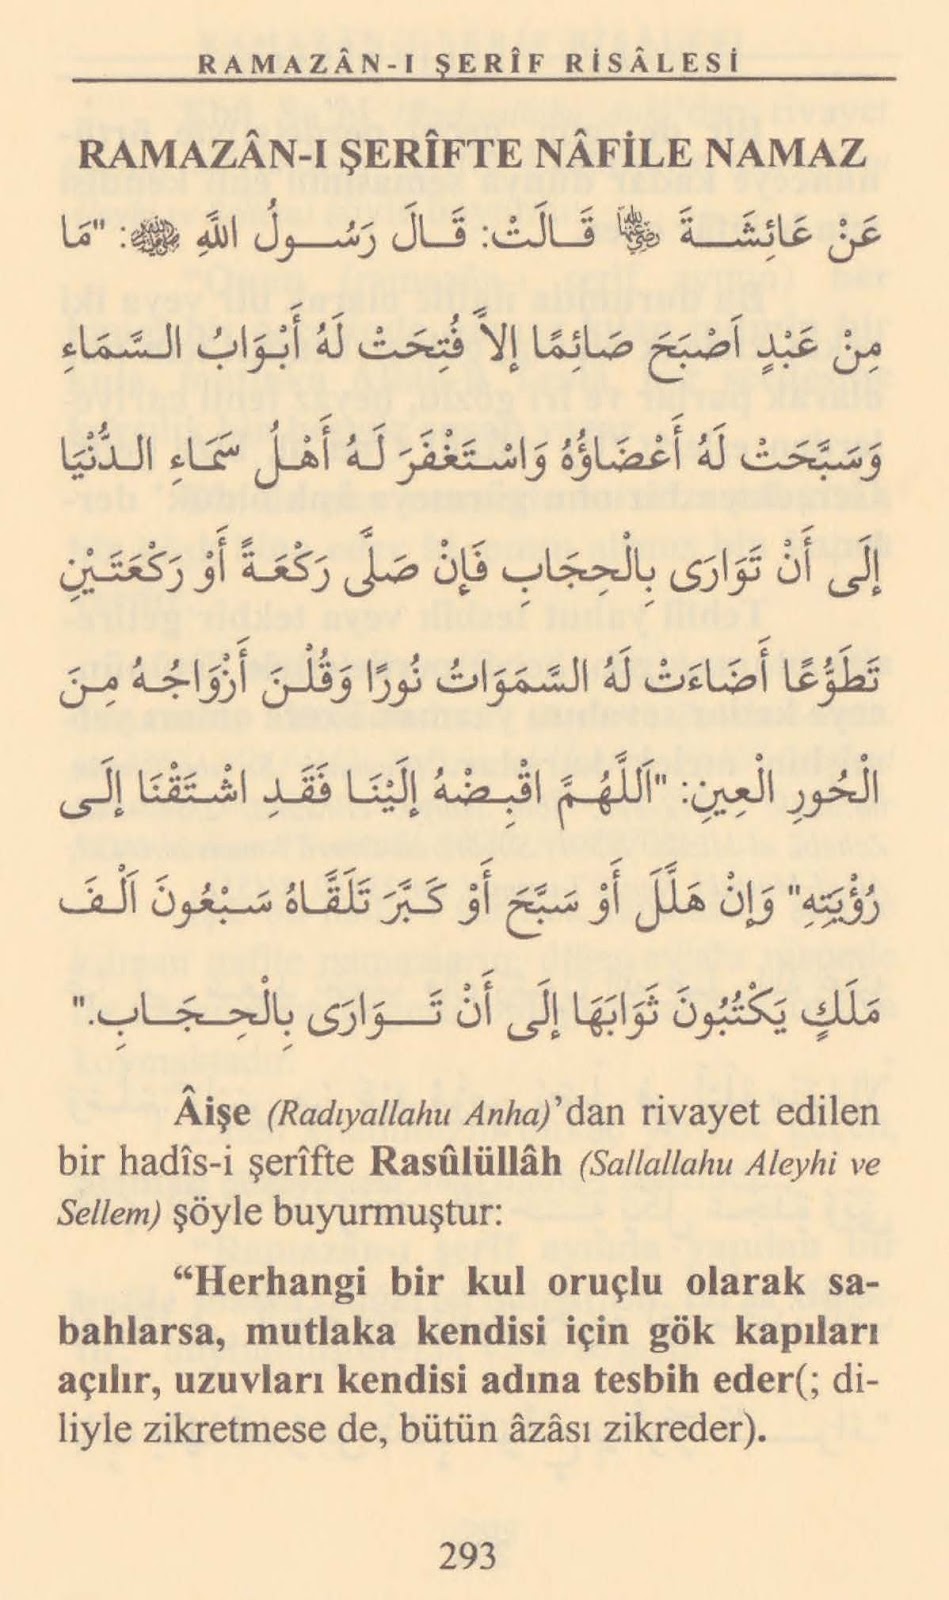 RAMAZÂN-I ŞERÎF RİSÂLESİ
RAMAZÂN-I ŞERÎFTE NÂFİLE NAMAZ
عَنْ عَائِشَةَ رَضِيَ اللهُ عَنْهَا قَالَتْ: قَالَ رَسُولُ اللَّهِ ﷺ: "مَا
مِنْ عَبْدٍ اَصْبَحَ صَائِمًا إِلاَّ فُتِحَتْ لَهُ أَبْوَابُ السَّمَاءِ
وَسَبَّحَتْ لَهُ أَعْضَاؤُهُ وَاسْتَغْفَرَ لَهُ أَهْلُ سَمَاءِ الدُّنْيَا
إِلَى أَنْ تَوَارَى بِالْحِجَابِ فَإِنْ صَلَّى رَكْعَةً أَوْ رَكْعَتَيْنِ
تَطَوُّعًا أَضَاءَتْ لَهُ السَّمَوَاتُ نُورًا وَقُلْنَ أَزْوَاجُهُ مِنَ
الْحُورِ الْعِينِ: "اَللَّهُمَّ اقْبِضْهُ إِلَيْنَا فَقَدِ اشْتَقْنَا إِلَى
رُؤْيَتِهِ" وَإِنْ هَلَّلَ أَوْ سَبَّحَ أَوْ كَبَّرَ تَلَقَّاهُ سَبْعُونَ اَلْفَ
مَلَكٍ يَكْتُبُونَ ثَوَابَهَا إِلَى أَنْ تَوَارَى بِالْحِجَابِ."
Âişe (Radıyallahu Anha)'dan rivayet edilen
bir hadîs-i şerîfte Rasûlüllâh (Sallallahu Aleyhi ve
Sellem) şöyle buyurmuştur:
“Herhangi bir kul oruçlu olarak sa-
bahlarsa, mutlaka kendisi için gök kapıları
açılır, uzuvları kendisi adına tesbih eder(; di-
liyle zikretmese de, bütün âzâsı zikreder).
293